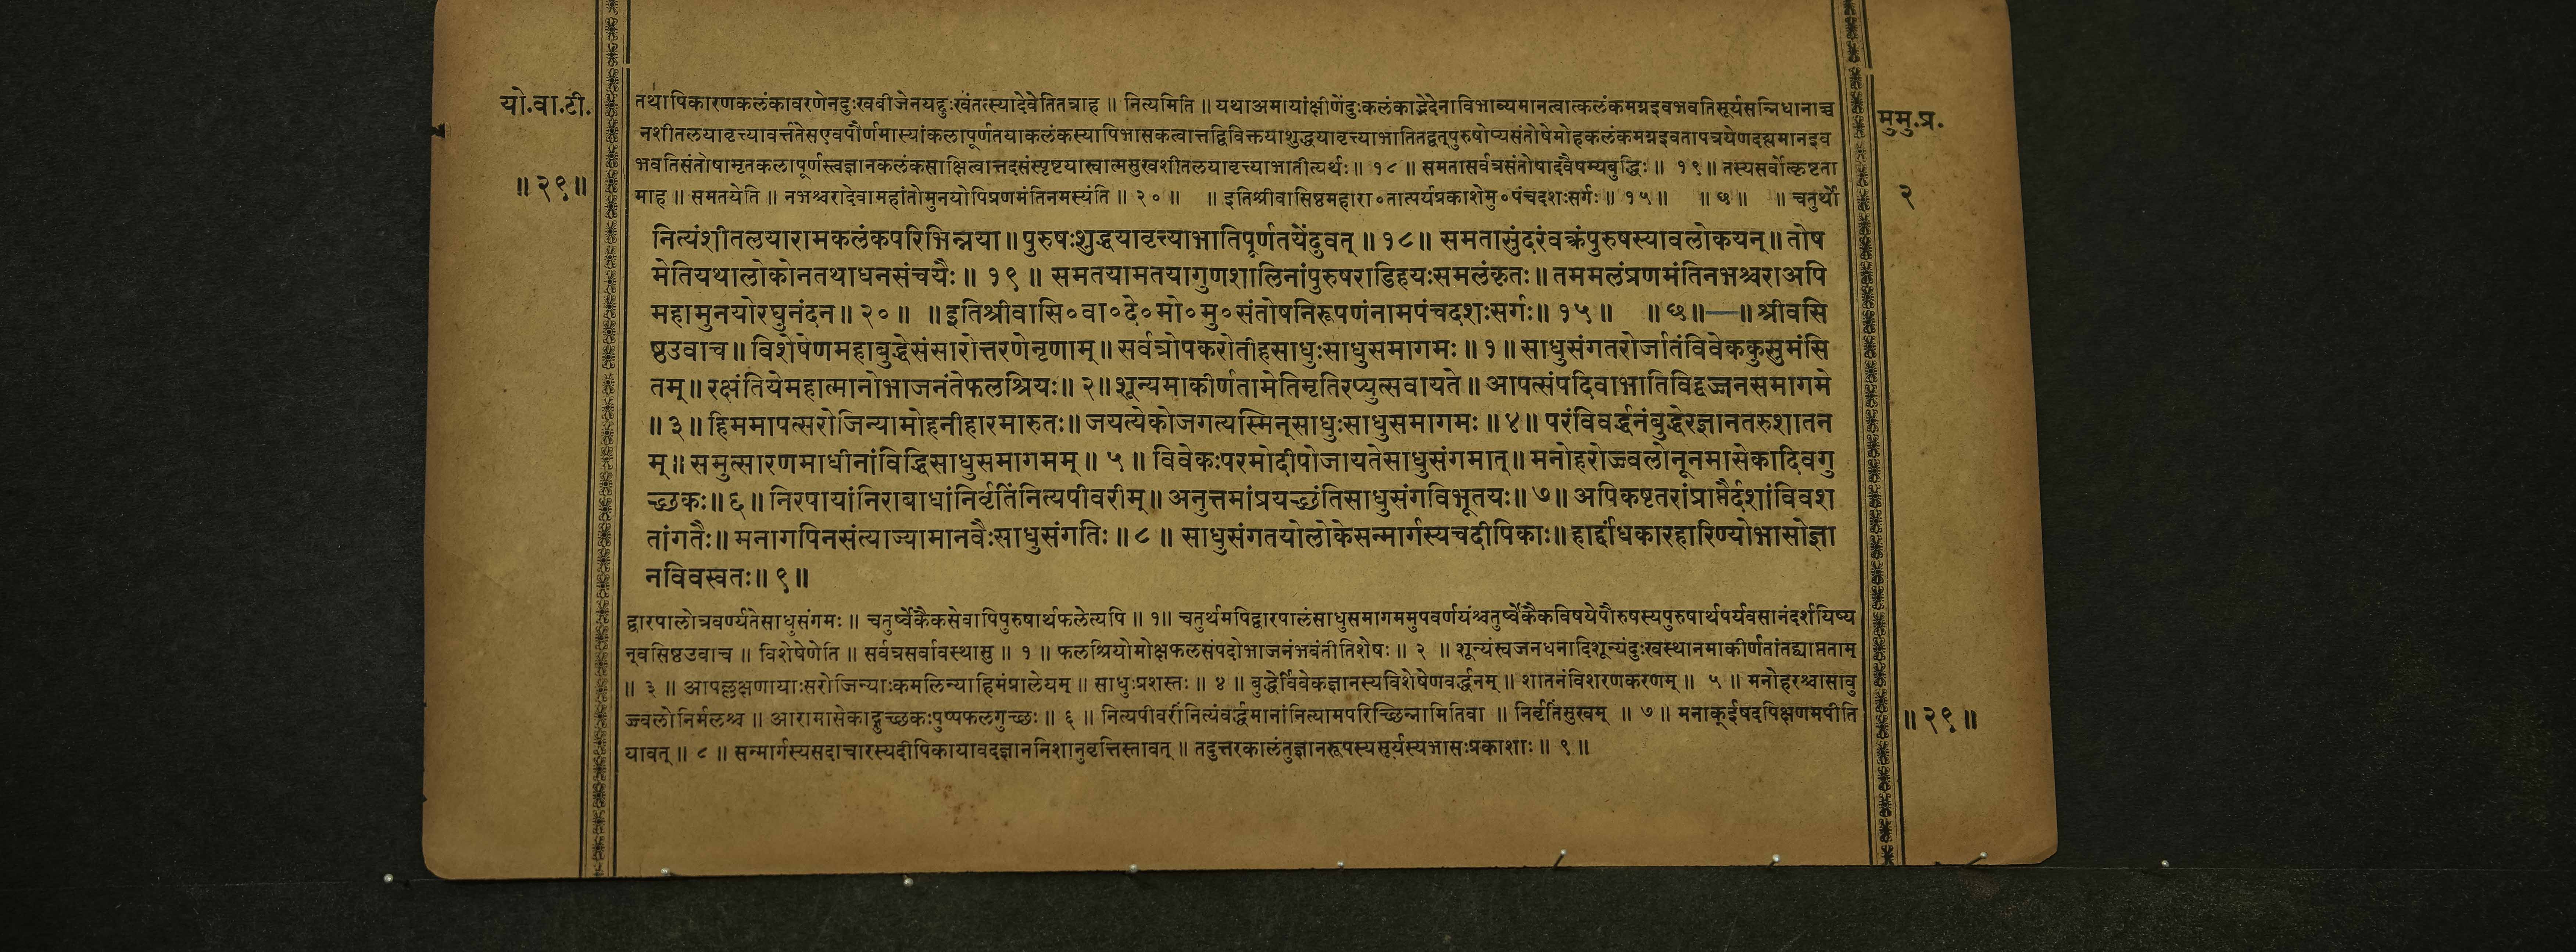 यो.वा.टी.
॥ २९ ॥
मुमु.प्र.
२
तथापिकारणकलंकावरणेनदुःखबीजेनयद्दुःखंतत्स्यादेवेतितत्राह ॥ नित्यमिति ॥ यथाअमायांक्षीणेंदुःकलंकाद्भेदेनाविभाव्यमानत्वात्कलंकमग्नइवभवतिसूर्यसन्निधानाच्च
नशीतलयावृत्त्यावर्त्ततेसएवपौर्णमास्यांकलापूर्णतयाकलंकस्यापिभासकत्वात्तद्विविक्तयाशुद्धयावृत्त्याभातितद्वत्पुरुषोप्यसंतोषेमोहकलंकमग्नइवतापत्रयेणदह्यमानइव
भवतिसंतोषामृतकलापूर्णस्त्वज्ञानकलंकसाक्षित्वात्तदसंस्पृष्टयास्वात्मसुखशीतलयावृत्त्याभातीत्यर्थः ॥ १८ ॥ समतासर्वत्रसंतोषादवैषम्यबुद्धिः ॥ १९ ॥ तस्यसर्वोत्कृष्टता
माह ॥ समतयेति ॥ नभश्चरादेवामहांतोमुनयोपिप्रणमंतिनमस्यंति ॥ २० ॥ ॥ इतिश्रीवासिष्ठमहारा॰तात्पर्यप्रकाशेमु॰पंचदशःसर्गः ॥ १५ ॥ ॥ छ ॥ ॥ चतुर्थो
नित्यंशीतलयारामकलंकपरिभिन्नया ॥ पुरुषःशुद्धयावृत्त्याभातिपूर्णतयेंदुवत् ॥ १८ ॥ समतासुंदरंवक्त्रंपुरुषस्यावलोकयन् ॥ तोष
मेतियथालोकोनतथाधनसंचयैः ॥ १९ ॥ समतयामतयागुणशालिनांपुरुषराडिहयःसमलंकृतः ॥ तममलंप्रणमंतिनभश्चराअपि
महामुनयोरघुनंदन ॥ २० ॥ ॥ इतिश्रीवासि॰वा॰दे॰मो॰मु॰संतोषनिरूपणंनामपंचदशःसर्गः ॥ १५ ॥ ॥ छ ॥ ॥ श्रीवसि
ष्ठउवाच ॥ विशेषेणमहाबुद्धेसंसारोत्तरणेनृणाम् ॥ सर्वत्रोपकरोतीहसाधुःसाधुसमागमः ॥ १ ॥ साधुसंगतरोर्जातंविवेककुसुमंसि
तम् ॥ रक्षंतियेमहात्मानोभाजनंतेफलश्रियः ॥ २ ॥ शून्यमाकीर्णतामेतिमृतिरप्युत्सवायते ॥ आपत्संपदिवाभातिविद्वज्जनसमागमे
॥ ३ ॥ हिममापत्सरोजिन्यामोहनीहारमारुतः ॥ जयत्येकोजगत्यस्मिन्साधुःसाधुसमागमः ॥ ४ ॥ परंविवर्द्धनंबुद्धेरज्ञानतरुशातन
म् ॥ समुत्सारणमाधीनांविद्धिसाधुसमागमम् ॥ ५ ॥ विवेकःपरमोदीपोजायतेसाधुसंगमात् ॥ मनोहरोज्ज्वलोनूनमासेकादिवगु
च्छकः ॥ ६ ॥ निरपायांनिराबाधांनिर्वृतिंनित्यपीवरीम् ॥ अनुत्तमांप्रयच्छंतिसाधुसंगविभूतयः ॥ ७ ॥ अपिकष्टतरांप्राप्तैर्दशांविवश
तांगतैः ॥ मनागपिनसंत्याज्यामानवैःसाधुसंगतिः ॥ ८ ॥ साधुसंगतयोलोकेसन्मार्गस्यचदीपिकाः ॥ हार्द्दांधकारहारिण्योभासोज्ञा
नविवस्वतः ॥ ९ ॥
द्वारपालोत्रवर्ण्यतेसाधुसंगमः ॥ चतुर्ष्वेकैकसेवापिपुरुषार्थफलेत्यपि ॥ १ ॥ चतुर्थमपिद्वारपालंसाधुसमागममुपवर्णयंश्चतुर्ष्वेकैकविषयेपौरुषस्यपुरुषार्थपर्यवसानंदर्शयिष्य
न्वसिष्ठउवाच ॥ विशेषेणेति ॥ सर्वत्रसर्वावस्थासु ॥ १ ॥ फलश्रियोमोक्षफलसंपदोभाजनंभवंतीतिशेषः ॥ २ ॥ शून्यंस्वजनधनादिशून्यंदुःखस्थानमाकीर्णतांतद्व्याप्तताम्
॥ ३ ॥ आपल्लक्षणायाःसरोजिन्याःकमलिन्याहिमंप्रालेयम् ॥ साधुःप्रशस्तः ॥ ४ ॥ बुद्धेर्विवेकज्ञानस्यविशेषेणवर्द्धनम् ॥ शातनंविशरणकरणम् ॥ ५ ॥ मनोहरश्चासावु
ज्ज्वलोनिर्मलश्च ॥ आरामासेकाद्गुच्छकःपुष्पफलगुच्छः ॥ ६ ॥ नित्यपीवरींनित्यंवर्द्धमानांनित्यामपरिच्छिन्नामितिवा ॥ निर्वृतिंसुखम् ॥ ७ ॥ मनाक्ईषदपिक्षणमपीति
यावत् ॥ ८ ॥ सन्मार्गस्यसदाचारस्यदीपिकायावदज्ञाननिशानुवृत्तिस्तावत् ॥ तदुत्तरकालंतुज्ञानरूपस्यसूर्यस्यभासःप्रकाशाः ॥ ९ ॥
॥ २९ ॥